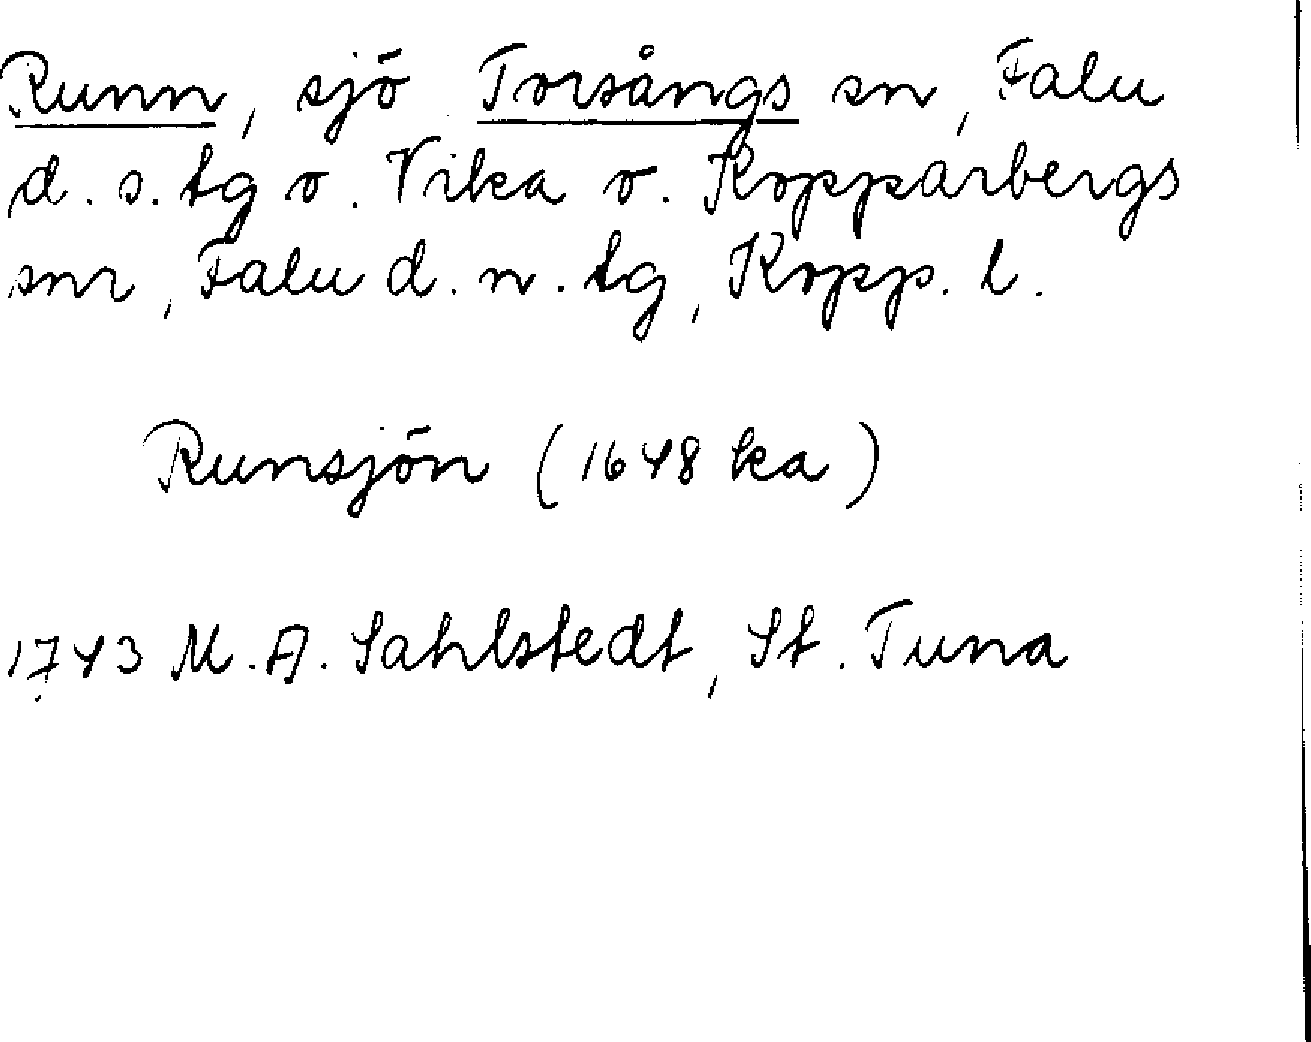 Runn, sjö Torsångs sn, Falu
d. s. tg o. Vika o. Kopparbergs
snr, Falu d. n. tg, Kopp. l.
Runsjön (1648 ka)
1743 M. A. Sahlstedt, St. Tuna